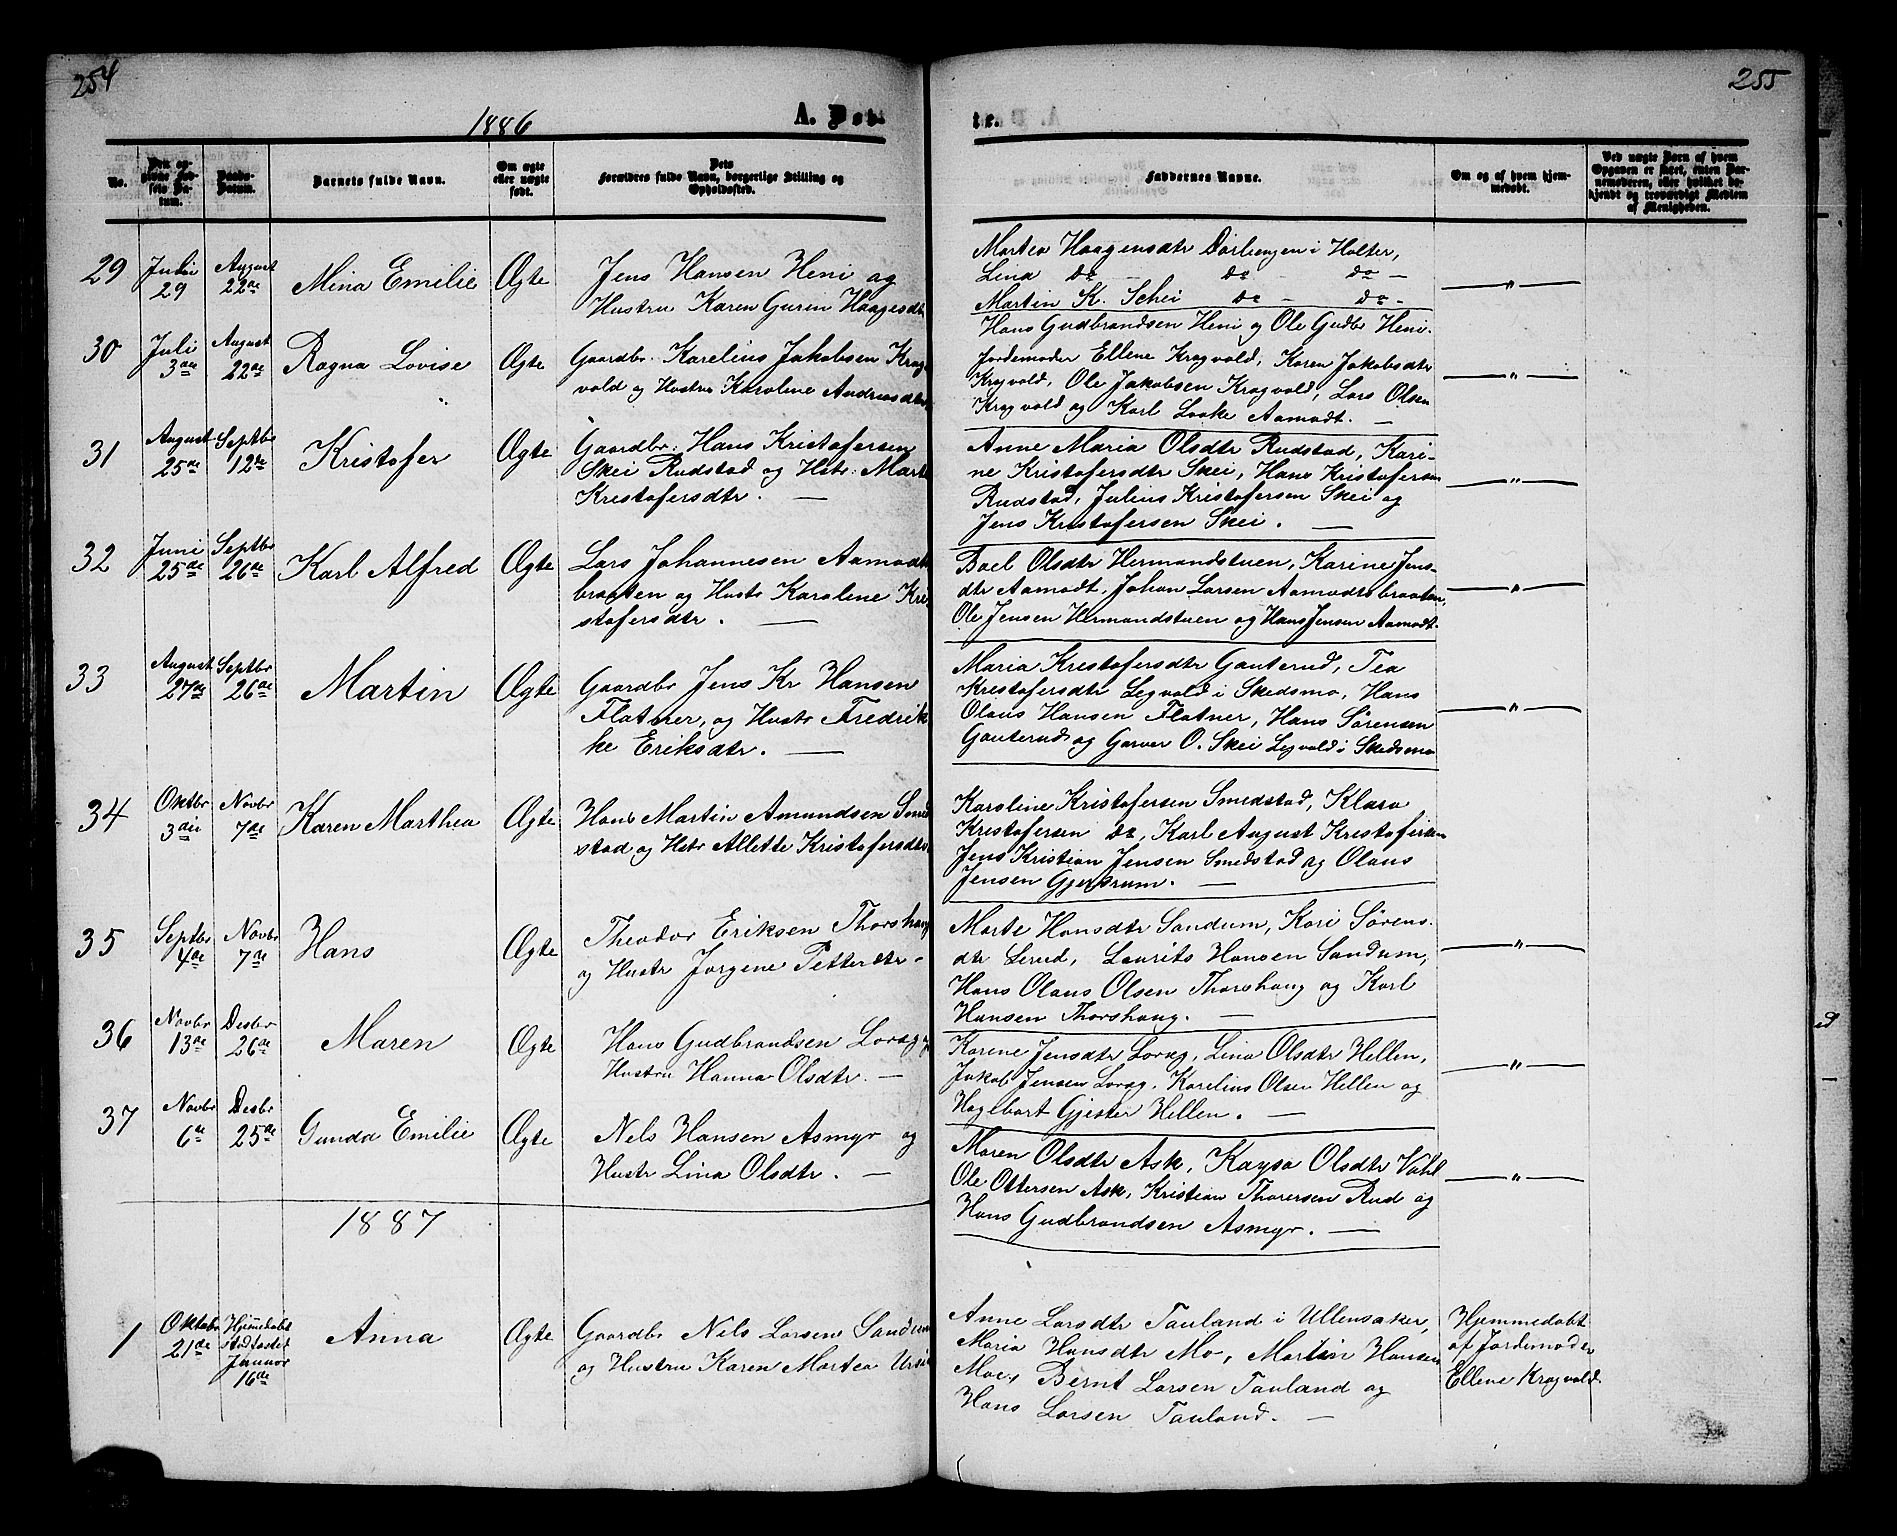 254
255
1886
A. Døb-
te.
No.
Barnets fulde Navn.
Om ægte eller uægte født.
Dets Forældres fulde Navn, borgerlige Stilling og Opholdssted.
Faddernes Navne.
Om og af hvem hjemmedøbt.
Ved uægte Barn af hvem Opgaven er sket, enten Barnemoderen, eller hvilket bekjendt og troværdigt Medlem af Menigheden.
29
Juli 29
August 22de
Mina Emilie
Ægte
Jens Hansen Heni og
Hustru Karen Guren Haagesdt
Martea Haagensdtr Dørlengen i Holter,
Lina do - do - do -
Martin K. Schei do - do -
Hans Gudbrandsen Heni og Ole Gudbr Heni.
— " —
30
Juli 3die
August 22de
Ragna Lovise
Ægte
Gaardbr. Karelius Jakobsen Krog-
vold og Hustru Karoline Andreasdtr
Jordemoder Ellene Krogvold, Karen Jakobsdtr
Krogvold, Ole Jakobsen Krogvold, Lars Olsen
Krogvold og Karl Laake Aamodt. —
— " —
31
August 25de
Septbr 12te
Kristofer
Ægte
Gaardbr. Hans Kristofersen
Skei Rudstad og Hstr. Marte
Kristofersdtr. —
Anne Maria Olsdtr Rudstad, Kari-
ne Kristofersdtr Skei, Hans Kristofersen
Rudstad, Julius Kristofersen Skei og
Jens Kristofersen Skei. —
— " —
32
Juni 25de
Septbr 26de
Karl Alfred
Ægte
Lars Johannesen Aamodt
braaten og Hustr Karoline Kri-
stofersdtr. —
Boel Olsdtr Hermandstuen, Karine Jens-
dtr Aamodt, Johan Larsen Aamodtsbraaten,
Ole Jensen Hermandstuen og Hans Jensen Aamodt.
— " —
33
August 27de
Septbr 26de
Martin
Ægte
Gaardbr Jens Kr Hansen
Flatner, og Hustr Fredrik-
ke Eriksdtr. —
Maria Kristofersdtr Gauterud, Tea
Kristofersdtr Legvold i Skedsmo, Hans
Olaus Hansen Flatner, Hans Sørensen
Gauterud og Garver O. Skei Legvold i Skedsmo
— " —
34
Oktbr 3die
Novbr 7de
Karen Marthea
Ægte
Hans Martin Amundsen Smed
stad og Hstr Allette Kristofersdtr
Karoline Kristofersen Smedstad, Klara
Kristofersen do, Karl August Kristofersen
Jens Kristian Jensen Smedstad og Olaus
Jensen Gjerdrum. —
35
Septbr 4de
Novbr 7de
Hans
Ægte
Theodor Eriksen Thorshaug
og Hustr Jørgene Pettersdtr -
Marte Hansdtr Sandum, Kari Sørens-
dtr Lerud, Laurits Hansen Sandum,
Hans Olaus Olsen Thorshaug og Karl
Hansen Thorshaug. —
— " —
36
Novbr 13de
Desbr 26de
Maren
Ægte
Hans Gudbrandsen Lovag og
Hustru Hanna Olsdtr. —
Karene Jensdtr Lovag, Lina Olsdtr Hellen,
Jakob Jensen Lovag, Karelius Olsen Hellen og
Haglbart Gjester Hellen. —
— " —
37
Novbr 6te
Desbr 25de
Gunda Emilie
Ægte
Nels Hansen Asmyr og
Hustr Lina Olsdtr. —
Maren Olsdtr Ask, Kaysa Olsdtr
Ole Ottersen Ask, Kristian Thorersen Rud og
Hans Gudbrandsen Asmyr. —
— " —
1887
1
Oktober 21de
Hjemmedøbt
stadfæstet
Januar
16de
Anna
Ægte
Gaardbr Nels Larsen Sandum
og Hustru Karen Martea
Anne Larsdtr Tauland i Ullensaker,
Maria Hansdtr Mo, Martin Hansen
Moe, Bernt Larsen Tauland og
Hans Larsen Tauland. —
Hjemmedøbt
af Jordemoder
Ellene Krogvold